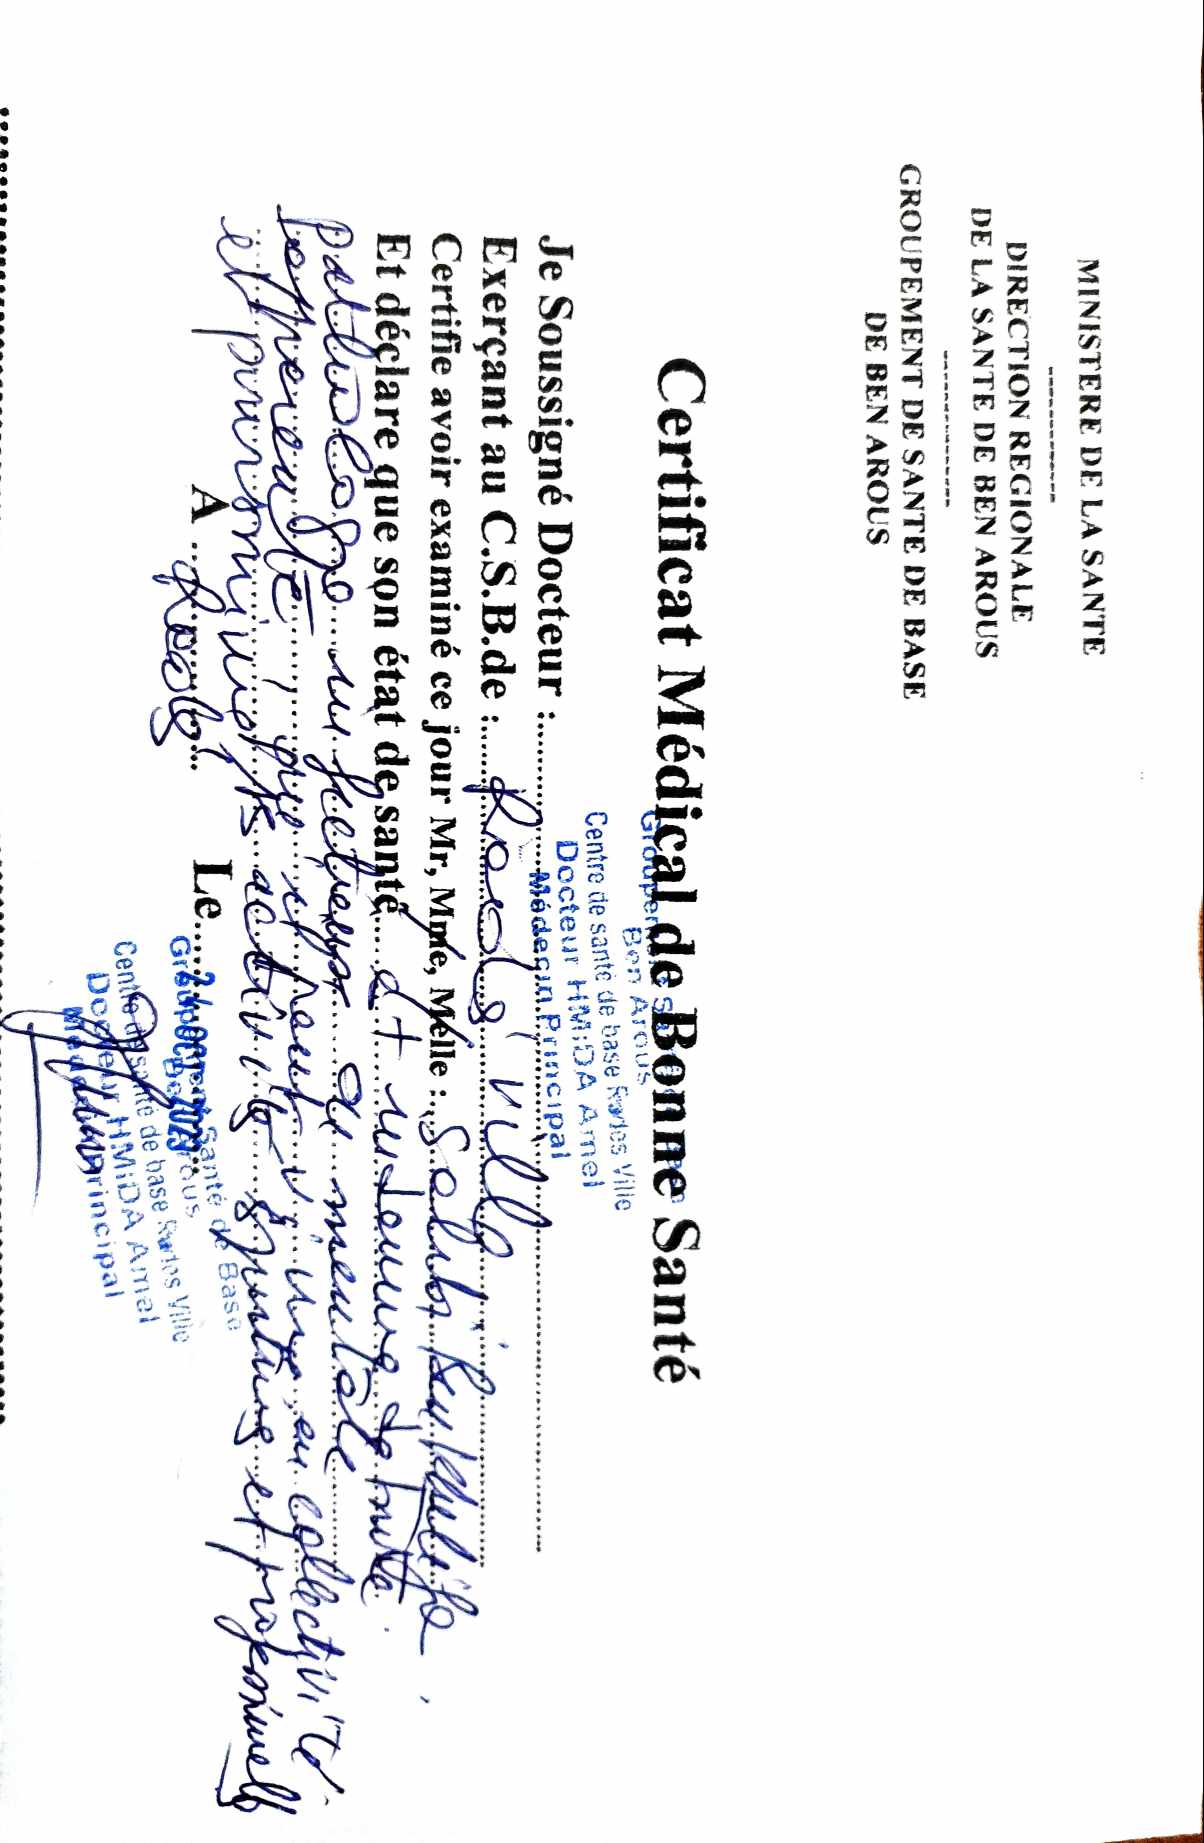 MINISTERE DE LA SANTE
------------
DIRECTION REGIONALE
DE LA SANTE DE BEN AROUS
--------------
GROUPEMENT DE SANTE DE BASE
DE BEN AROUS
Certificat Médical de Bonne Santé
Ben Arous
Centre de santé de base Rades Ville
Docteur HMIDA Amel
Médecin Principal
Je Soussigné Docteur :
Exerçant au C.S.B.de : Radès ville
Certifie avoir examiné ce jour Mr, Mme, Melle : Salhi
Et déclare que son état de santé est indemne de toute
pathologie infectieuse ou mentale
apparente, qu'il peut vivre en collectivité
et poursuivre ses activités sportives et professionnelle
A Radès Le 24 OCT 2023
Groupement Santé de Base
Ben Arous
Centre de santé de base Rades Ville
Docteur HMIDA Amel
Médecin Principal